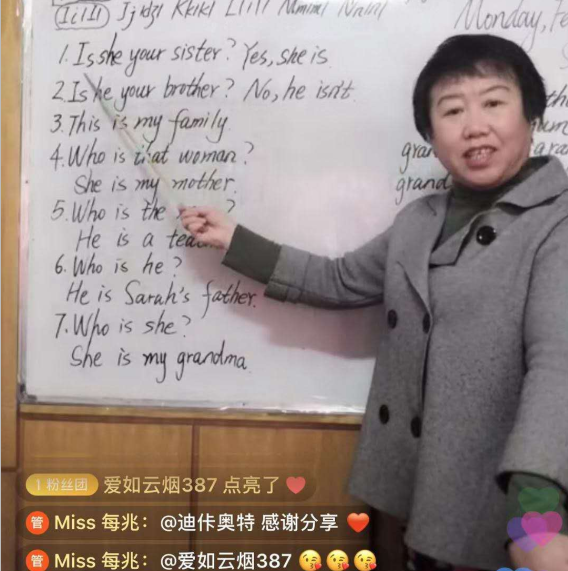 IiII Jj KkKk LlLl
Monday, Fe
1. Is she your sister? Yes, she is.
2. Is he your brother? No, he isn't.
3. This is my family.
4. Who is that woman?
She is my mother.
5. Who is the ?
He is a tea
6. Who is he?
He is Sarah's father.
7. Who is she?
She is my grandma.
gran
grand
1 粉丝团 爱如云烟387 点亮了
管 Miss 每兆：@迪佧奥特 感谢分享
管 Miss 每兆：@爱如云烟387